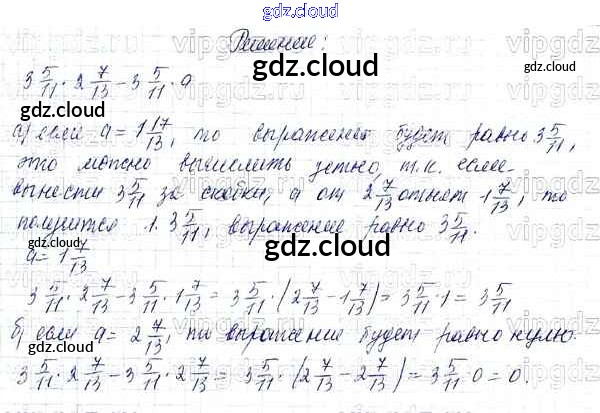 gdz.cloud
Решение:
gdz.cloud
3 5/11 · 2 7/13 − 3 5/11 · a
gdz.cloud
gdz.cloud
а) если a = 1 17/13, то выражение будет равно 3 5/11,
это можно вычислить устно, т.к. если
вынести 3 5/11 за скобки, а от 2 7/13 отнять 1 7/13, то
получится 1 · 3 5/11, выражение равно 3 5/11.
gdz.cloud
gdz.cloud
a = 1 7/13
3 5/11 · 2 7/13 − 3 5/11 · 1 7/13 = 3 5/11 · (2 7/13 − 1 7/13) = 3 5/11 · 1 = 3 5/11
gdz.cloud
б) если a = 2 7/13, то выражение будет равно нулю.
3 5/11 · 2 7/13 − 3 5/11 · 2 7/13 = 3 5/11 · (2 7/13 − 2 7/13) = 3 5/11 · 0 = 0.
gdz.cloud
gdz.cloud